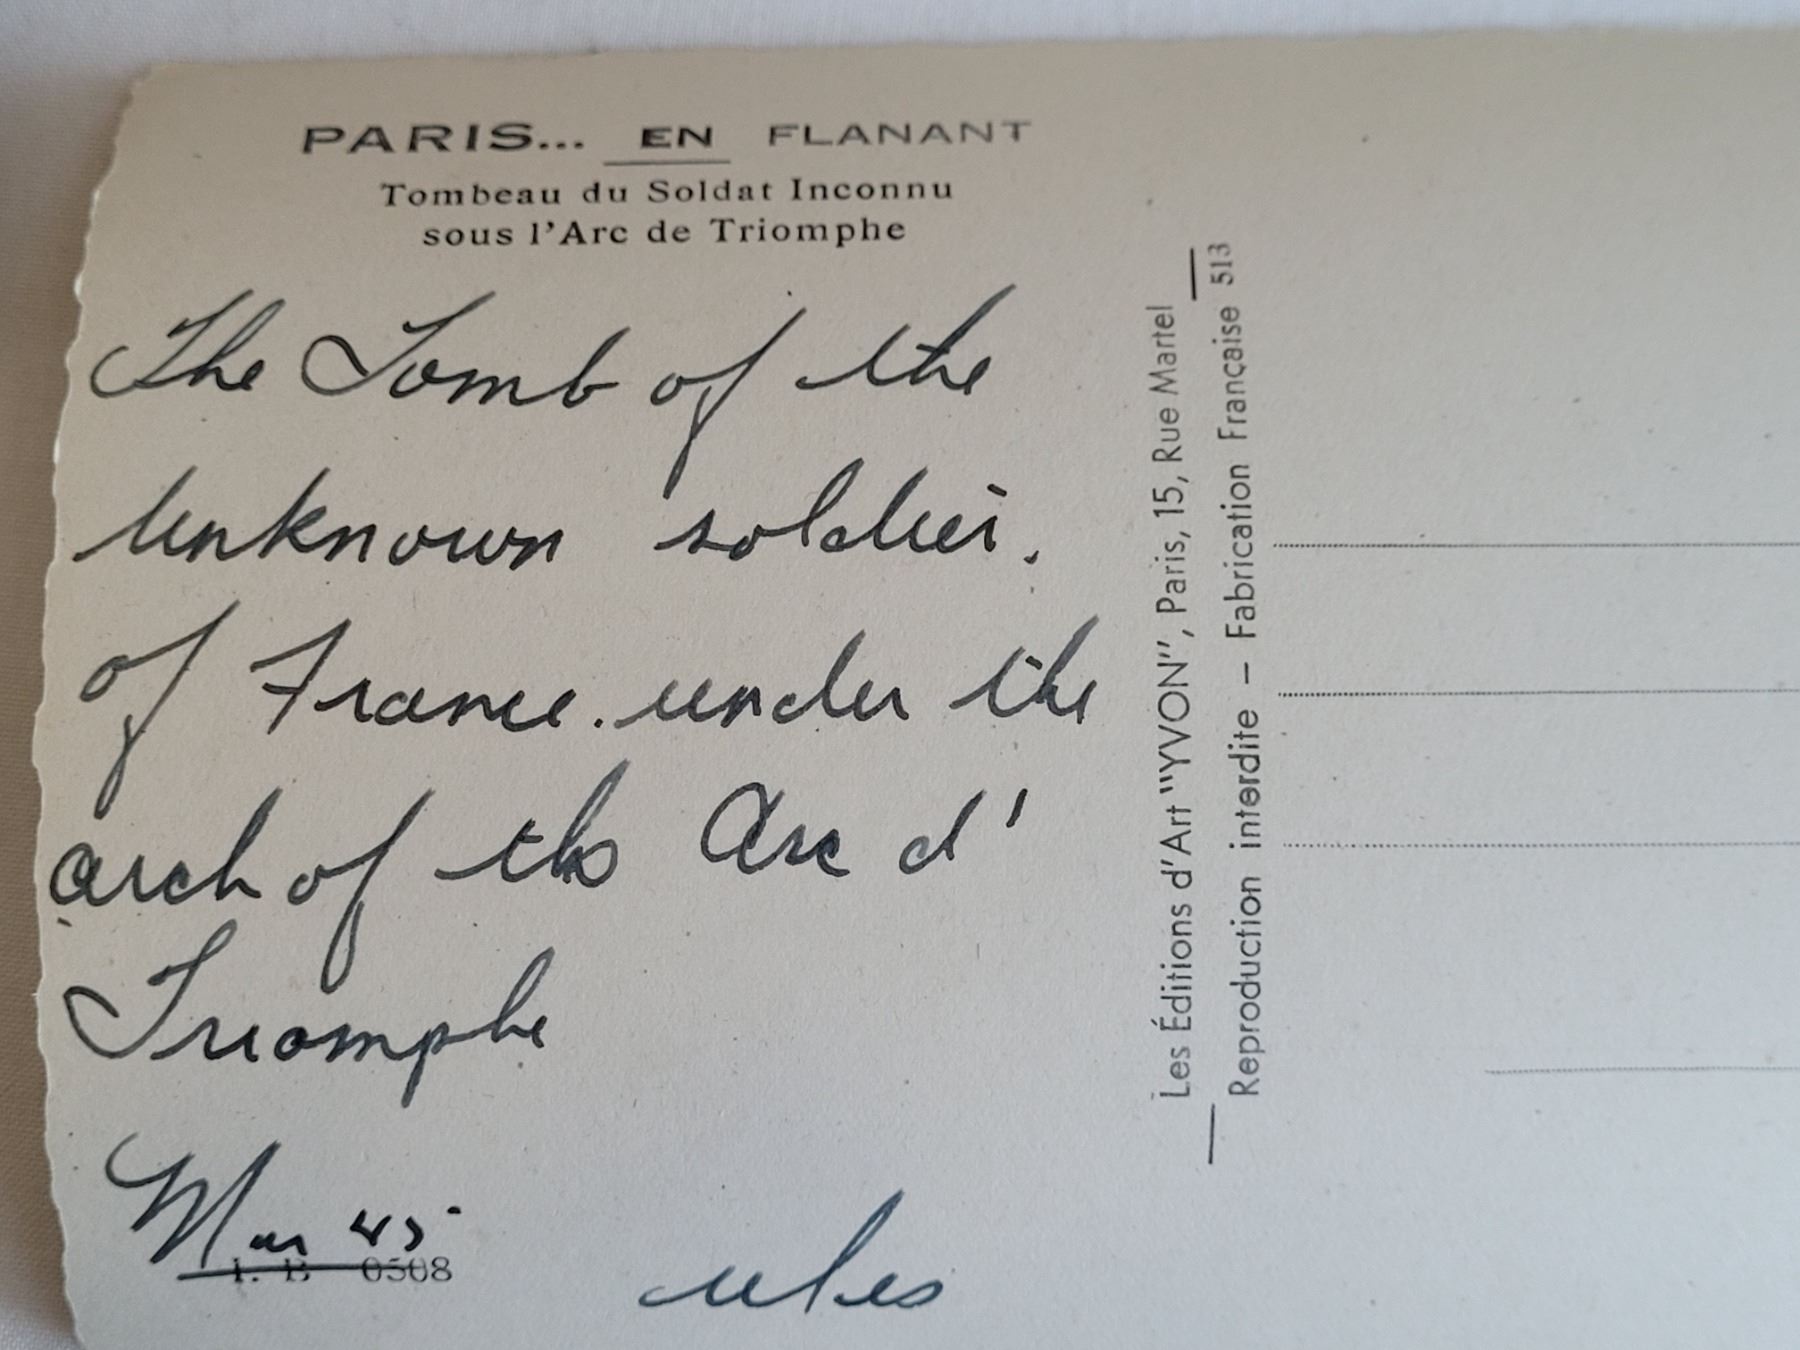 PARIS... EN FLANANT
Tombeau du Soldat Inconnu
sous l'Arc de Triomphe
The Tomb of the
unknown soldier.
of France. under the
arch of the Arc d'
Triomphe
Mar 45
I. B 0508
Les Éditions d'Art "YVON", Paris, 15, Rue Martel
Reproduction interdite – Fabrication Française 513